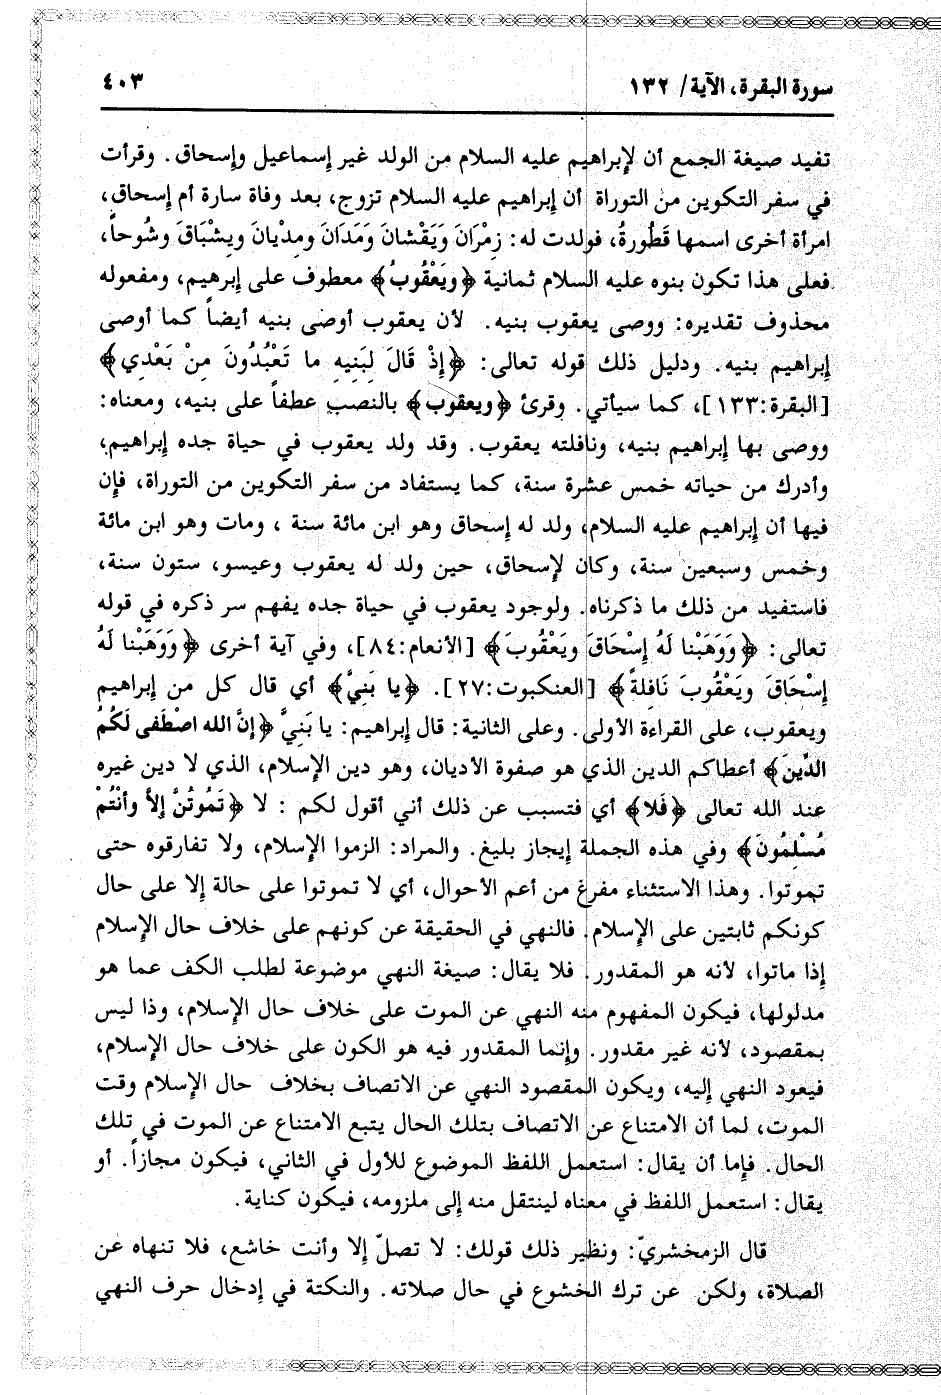 سورة البقرة، الآية/ ١٣٢
٤٠٣
تفيد صيغة الجمع أن لإبراهيم عليه السلام من الولد غير إسماعيل وإسحاق. وقرأت
في سفر التكوين من التوراة أن إبراهيم عليه السلام تزوج، بعد وفاة سارة أم إسحاق،
امرأة أخرى اسمها قَطُورةُ، فولدت له: زِمْرَانَ وَيَقْشانَ وَمَدَانَ ومِدْيانَ ويشْبَاقَ وشُوحاً،
فعلى هذا تكون بنوه عليه السلام ثمانية ﴿ويَعْقُوبُ﴾ معطوف على إبرهيم، ومفعوله
محذوف تقديره: ووصى يعقوب بنيه. لأن يعقوب أوصى بنيه أيضاً كما أوصى
إبراهيم بنيه. ودليل ذلك قوله تعالى: ﴿إِذْ قَالَ لِبَنِيهِ ما تَعْبُدُونَ مِنْ بَعْدِي﴾
[البقرة:١٣٣]، كما سيأتي. وقرئ ﴿ويعقوب﴾ بالنصب عطفاً على بنيه، ومعناه:
ووصى بها إبراهيم بنيه، ونافلته يعقوب. وقد ولد يعقوب في حياة جده إبراهيم،
وأدرك من حياته خمس عشرة سنة، كما يستفاد من سفر التكوين من التوراة، فإن
فيها أن إبراهيم عليه السلام، ولد له إسحاق وهو ابن مائة سنة ، ومات وهو ابن مائة
وخمس وسبعين سنة، وكان لإسحاق، حين ولد له يعقوب وعيسو، ستون سنة،
فاستفيد من ذلك ما ذكرناه. ولوجود يعقوب في حياة جده يفهم سر ذكره في قوله
تعالى: ﴿وَوَهَبْنا لَهُ إِسْحَاقَ ويَعْقُوبَ﴾ [الأنعام:٨٤]، وفي آية أخرى ﴿وَوَهَبْنا لَهُ
إِسْحَاقَ ويَعْقُوبَ نَافِلةً﴾ [العنكبوت:٢٧]. ﴿يا بَنِيَّ﴾ أي قال كل من إبراهيم
ويعقوب، على القراءة الأولى. وعلى الثانية: قال إبراهيم: يا بَنِيَّ ﴿إنَّ الله اصْطَفى لَكُمُ
الدِّينَ﴾ أعطاكم الدين الذي هو صفوة الأديان، وهو دين الإسلام، الذي لا دين غيره
عند الله تعالى ﴿فَلا﴾ أي فتسبب عن ذلك أني أقول لكم : لا ﴿تَمُوتُنَّ إلاَّ وأنْتُمْ
مُسْلِمُونَ﴾ وفي هذه الجملة إيجاز بليغ. والمراد: الزموا الإسلام، ولا تفارقوه حتى
تموتوا. وهذا الاستثناء مفرغ من أعم الأحوال، أي لا تموتوا على حالة إلا على حال
كونكم ثابتين على الإسلام. فالنهي في الحقيقة عن كونهم على خلاف حال الإسلام
إذا ماتوا، لأنه هو المقدور. فلا يقال: صيغة النهي موضوعة لطلب الكف عما هو
مدلولها، فيكون المفهوم منه النهي عن الموت على خلاف حال الإسلام، وذا ليس
بمقصود، لأنه غير مقدور. وإنما المقدور فيه هو الكون على خلاف حال الإسلام،
فيعود النهي إليه، ويكون المقصود النهي عن الاتصاف بخلاف حال الإسلام وقت
الموت، لما أن الامتناع عن الاتصاف بتلك الحال يتبع الامتناع عن الموت في تلك
الحال. فإما أن يقال: استعمل اللفظ الموضوع للأول في الثاني، فيكون مجازاً. أو
يقال: استعمل اللفظ في معناه لينتقل منه إلى ملزومه، فيكون كناية.
قال الزمخشريّ: ونظير ذلك قولك: لا تصلّ إلا وأنت خاشع، فلا تنهاه عن
الصلاة، ولكن عن ترك الخشوع في حال صلاته. والنكتة في إدخال حرف النهي